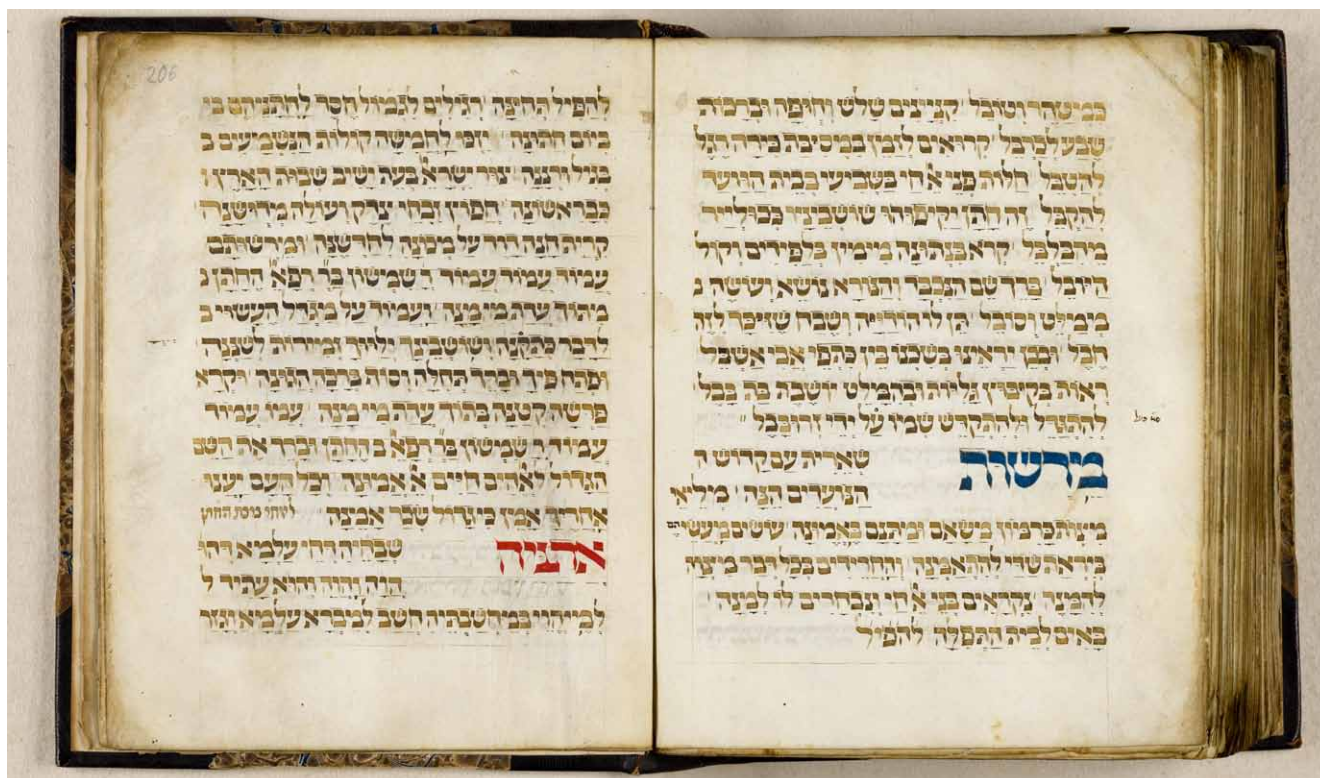 במישהר וטובל קניינים שלש וחופה וברכות
שבע לכרבל קרואים לזמן במסיבת בירה הגל
להטבל חלות פני א חי בשביעי בבית הוועד
להקבל זה החתן יקיפוהו שושביניו
קרא בנתינה מימין בלפידים וקול
היובל ברך שם הנכבד והנורא נושא ועושה
מימלט וסובל תן לו הודייה ושבח שזיכך לזה
חבל ובכן יראינו בשכנו בין כתפי אבי אשבל
ראות בקיבוץ גליות ובהמלט יושבת בת בבל
להתגדל ולהתקדש שמו על ידי זרובבל
מרשות
שארית עם קדוש ה
הנוערים הנה מיליאי
מצות כרמון משאם ומתנם באמונה עושים מעשיהם
ביראת שדי להתאמנה והחרידים בכל דבר מצוה
להמנה נקראים בני א חי ונבחרים לו למנה
באים לבית התפלה להפיל
206
להפיל תחינה רגילים לגמול חסד לחתניהם בי
ביום חתונה יזכו לחמישה קולות הנשמעים ב
בגיל ורננה צור ישרא בעת ישיב שבות הארץ
כבראשונה חפוץ זבחי צדק ועולה מדושנה
קרית חנה דוד על מכונה לחדשנה ומרשותם
עמוד עמוד עמוד ר שמשון בר רפא החתן
מתוך עדת מי מנה ועמוד על מגדל העשוי
לדבר כהקנה ושושבינך ילווך זמירות לשננה
ופתח פיך ובחר תחלה וסוף ברכה הגונה וקרא
פרשה קטנה בתוך עדת מי מנה עמוד עמוד
עמוד ר שמשון בר רפא החתן וברך את השם
הגדול לאהים חיים א אמונה וכל העם יענו
אחריך אמן בגדול שכר אמינה
ארכין
שבחיה דחי עלמיא דהו
הוה והוה והוא עתיד ל
למיהוי במחשבתיה חשב למיברא עלמיא וגזר